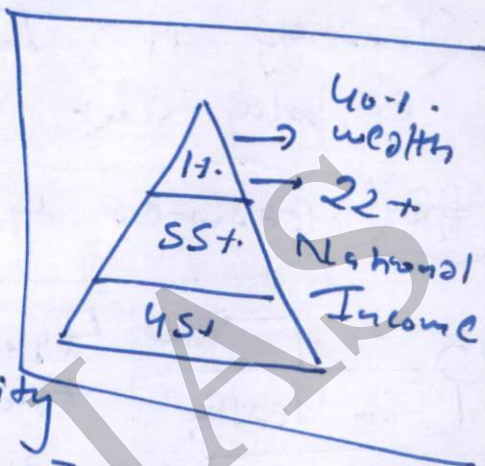 1%.
55%.
45%
40%.
wealth
22%
National
Income
ity
IAS